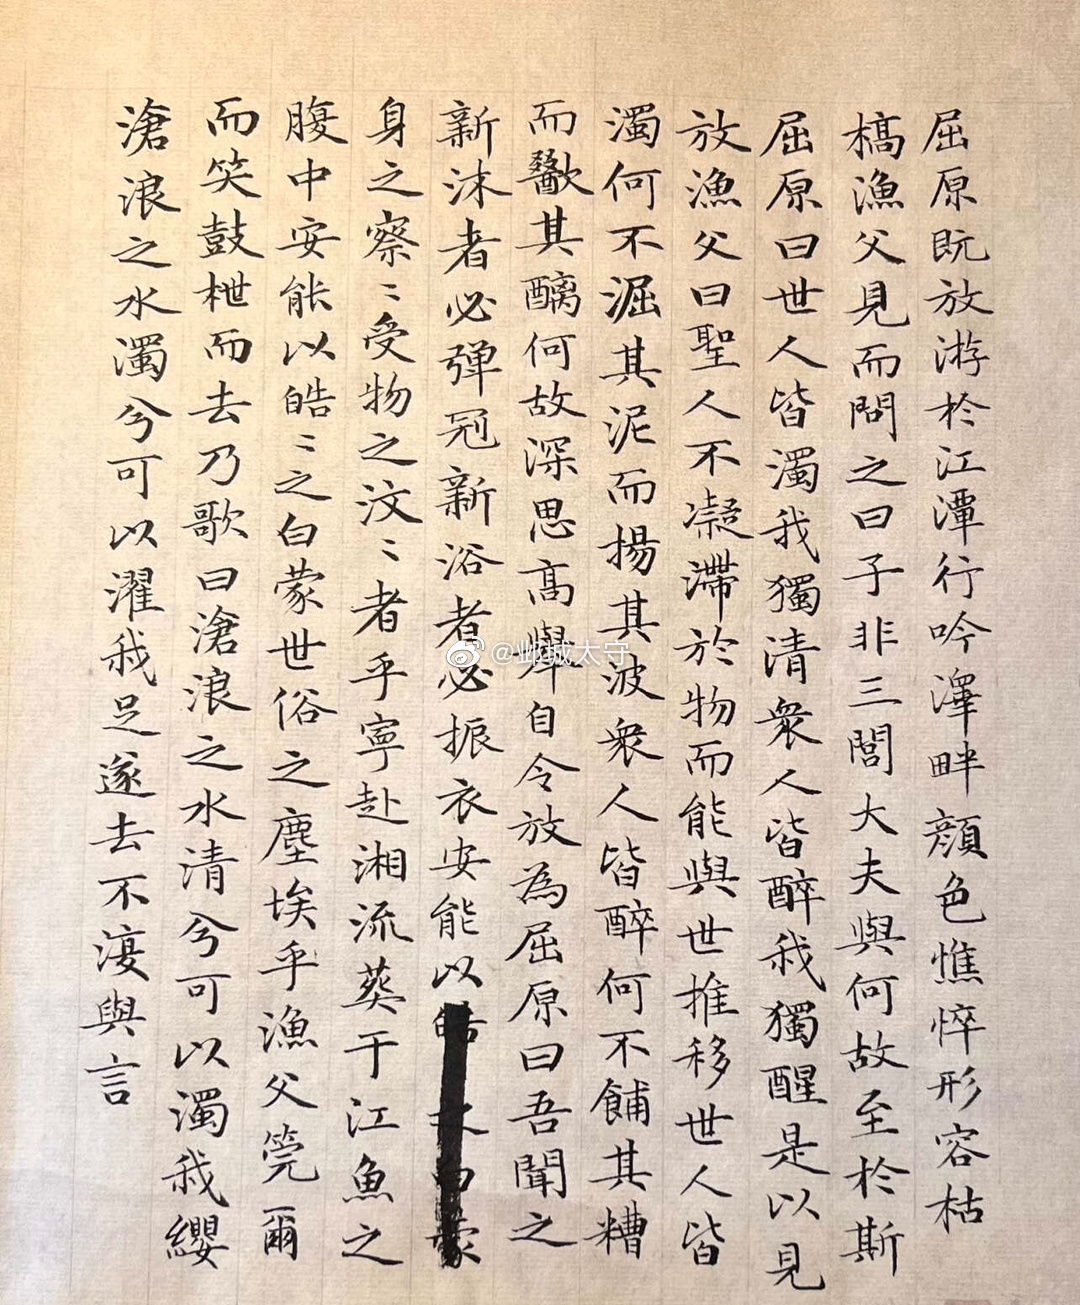 屈原既放游於江潭行吟澤畔顔色憔悴形容枯
槁漁父見而問之曰子非三閭大夫與何故至於斯
屈原曰世人皆濁我獨清衆人皆醉我獨醒是以見
放漁父曰聖人不凝滯於物而能與世推移世人皆
濁何不淈其泥而揚其波衆人皆醉何不餔其糟
而歠其醨何故深思高舉自令放為屈原曰吾聞之
新沐者必彈冠新浴者必振衣安能以
身之察〻受物之汶〻者乎寧赴湘流葬于江魚之
腹中安能以皓〻之白蒙世俗之塵埃乎漁父莞爾
而笑鼓枻而去乃歌曰滄浪之水清兮可以濁我纓
滄浪之水濁兮可以濯我足遂去不復與言
@邺城太守